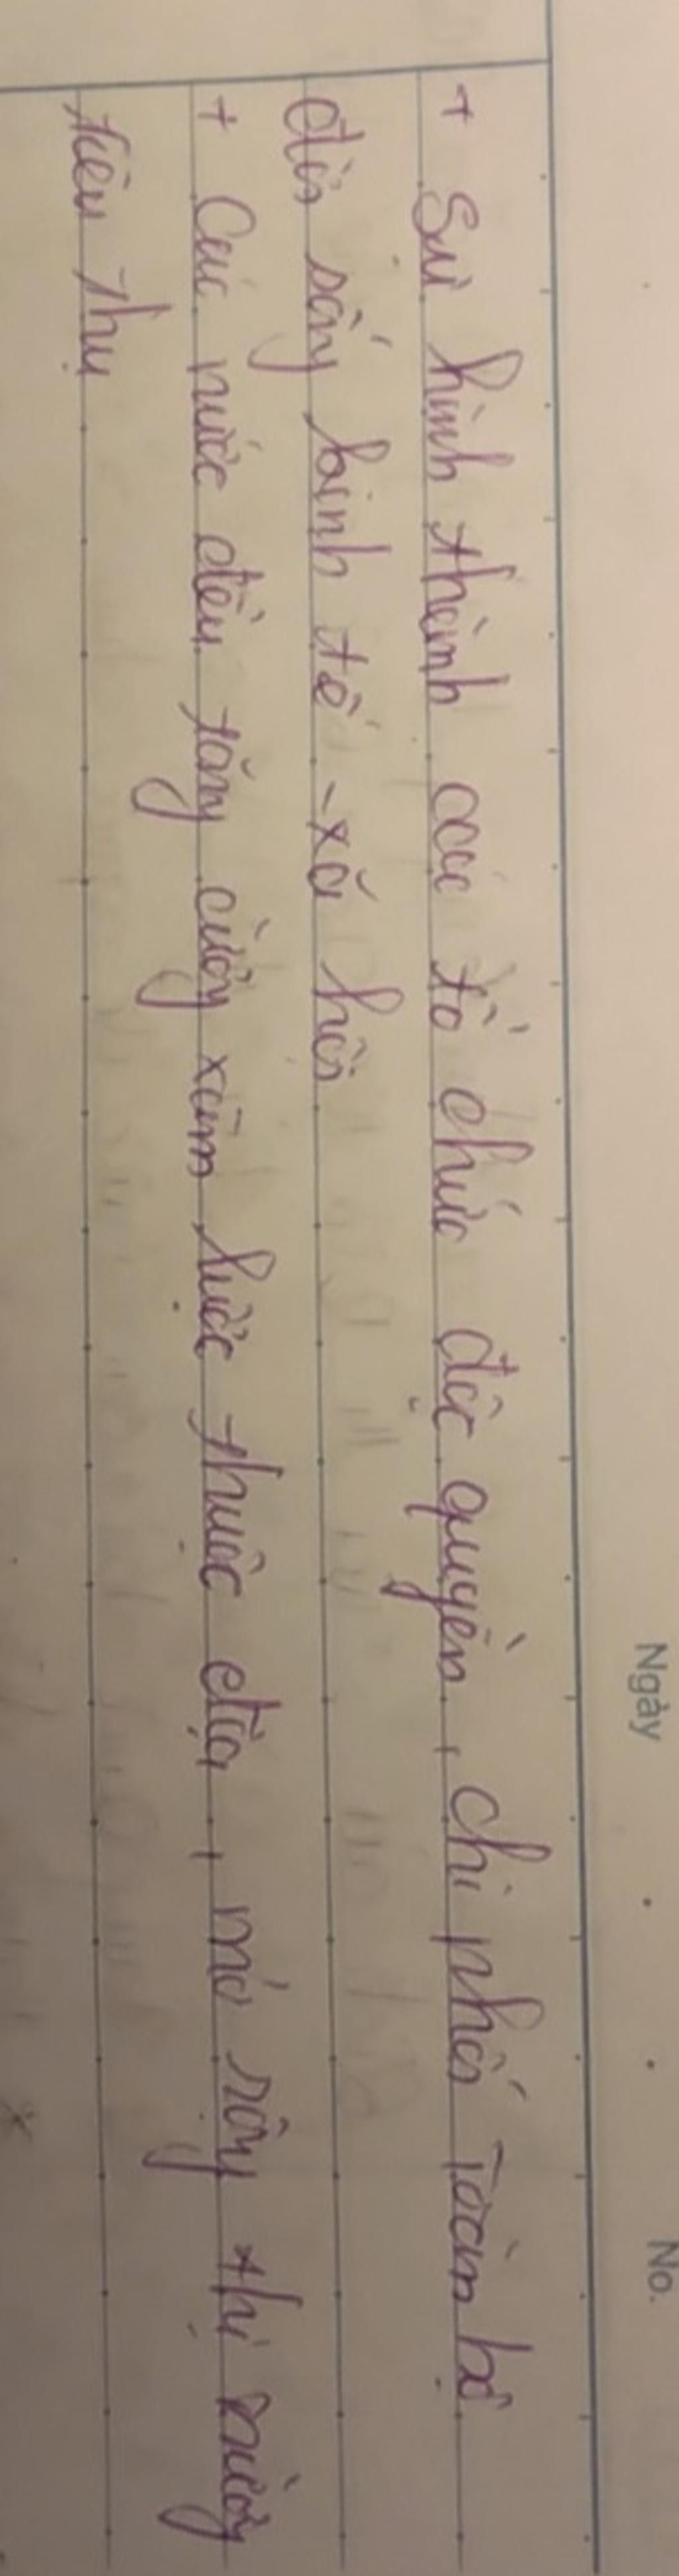 Ngày . . No.
+ Sự hình thành các tổ chức độc quyền, chi phối toàn bộ
đời sống kinh tế - xã hội
+ Các nước đều tăng cường xâm lược thuộc địa, mở rộng thị trường
tiêu thụ